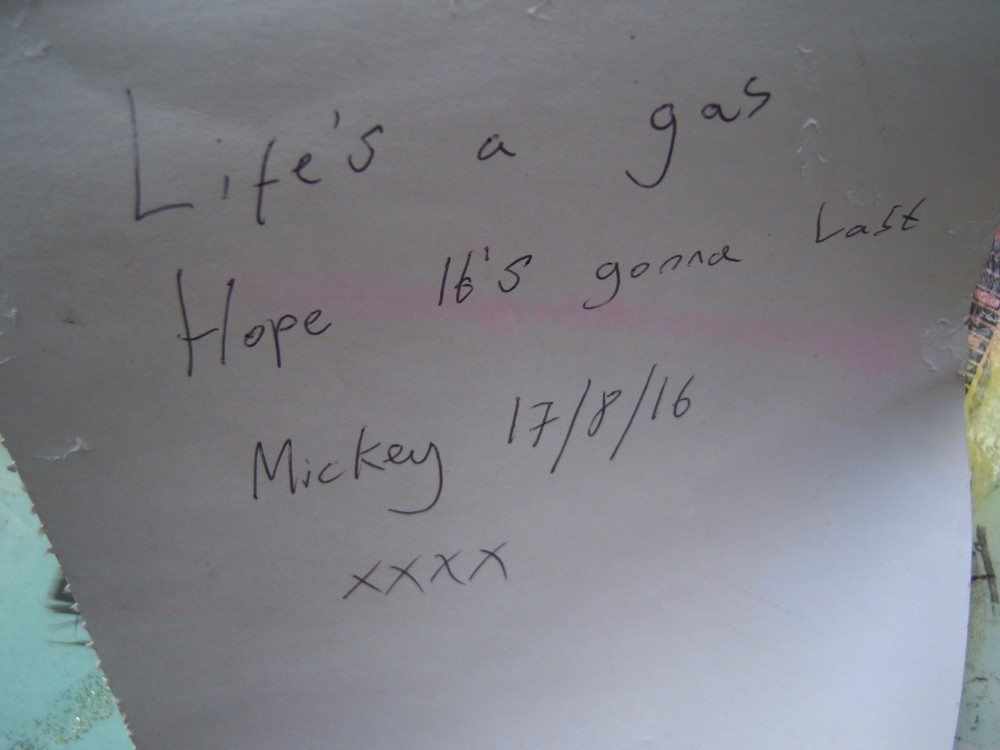 Life's a gas
Hope It's gonna Last
Mickey 17/8/16
xxxx